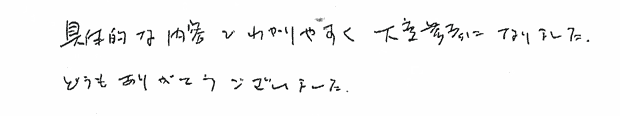 具体的な内容でわかりやすく 大変参考になりました.
どうもありがとうございました.